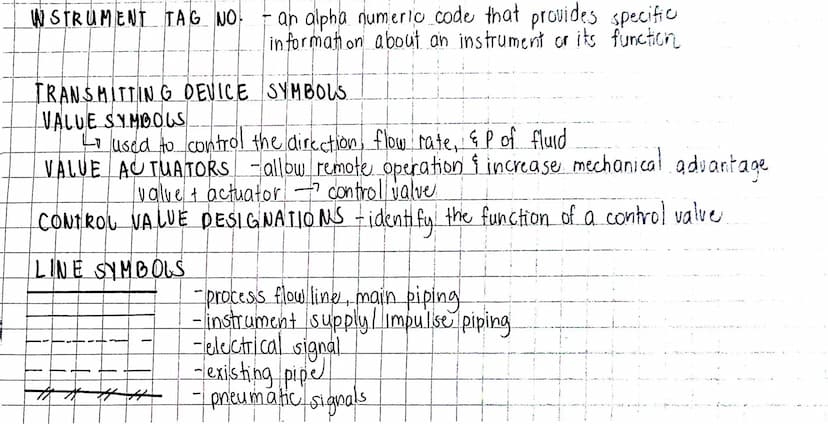 INSTRUMENT TAG NO. - an alpha numeric code that provides specific
information about an instrument or its function
TRANSMITTING DEVICE SYMBOLS
VALUE SYMBOLS
↳ used to control the direction, flow rate, & P of fluid
VALUE ACTUATORS - allow remote operation & increase mechanical advantage
valve + actuator → control valve
CONTROL VALUE DESIGNATIONS - identify the function of a control valve
LINE SYMBOLS
- process flow line, main piping
- instrument supply / impulse piping
- electrical signal
- existing pipe
- pneumatic signals